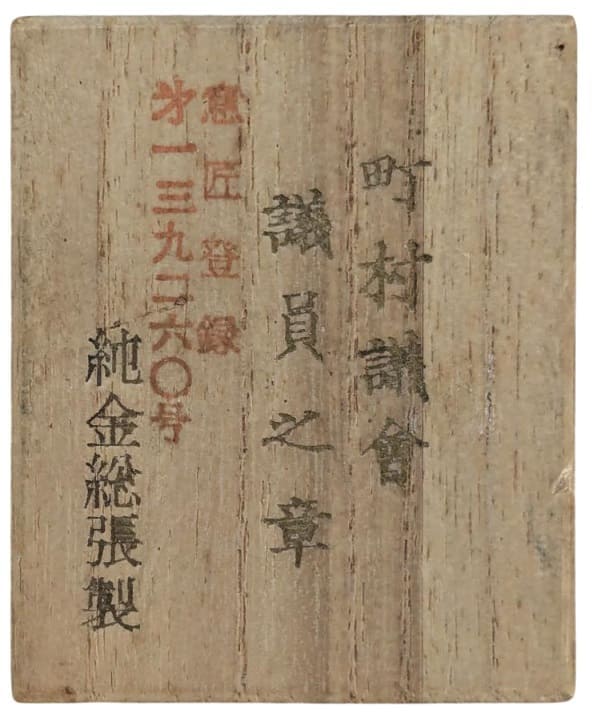 町村議會
議員之章
意匠登録
才一三九二六〇号
純金総張製